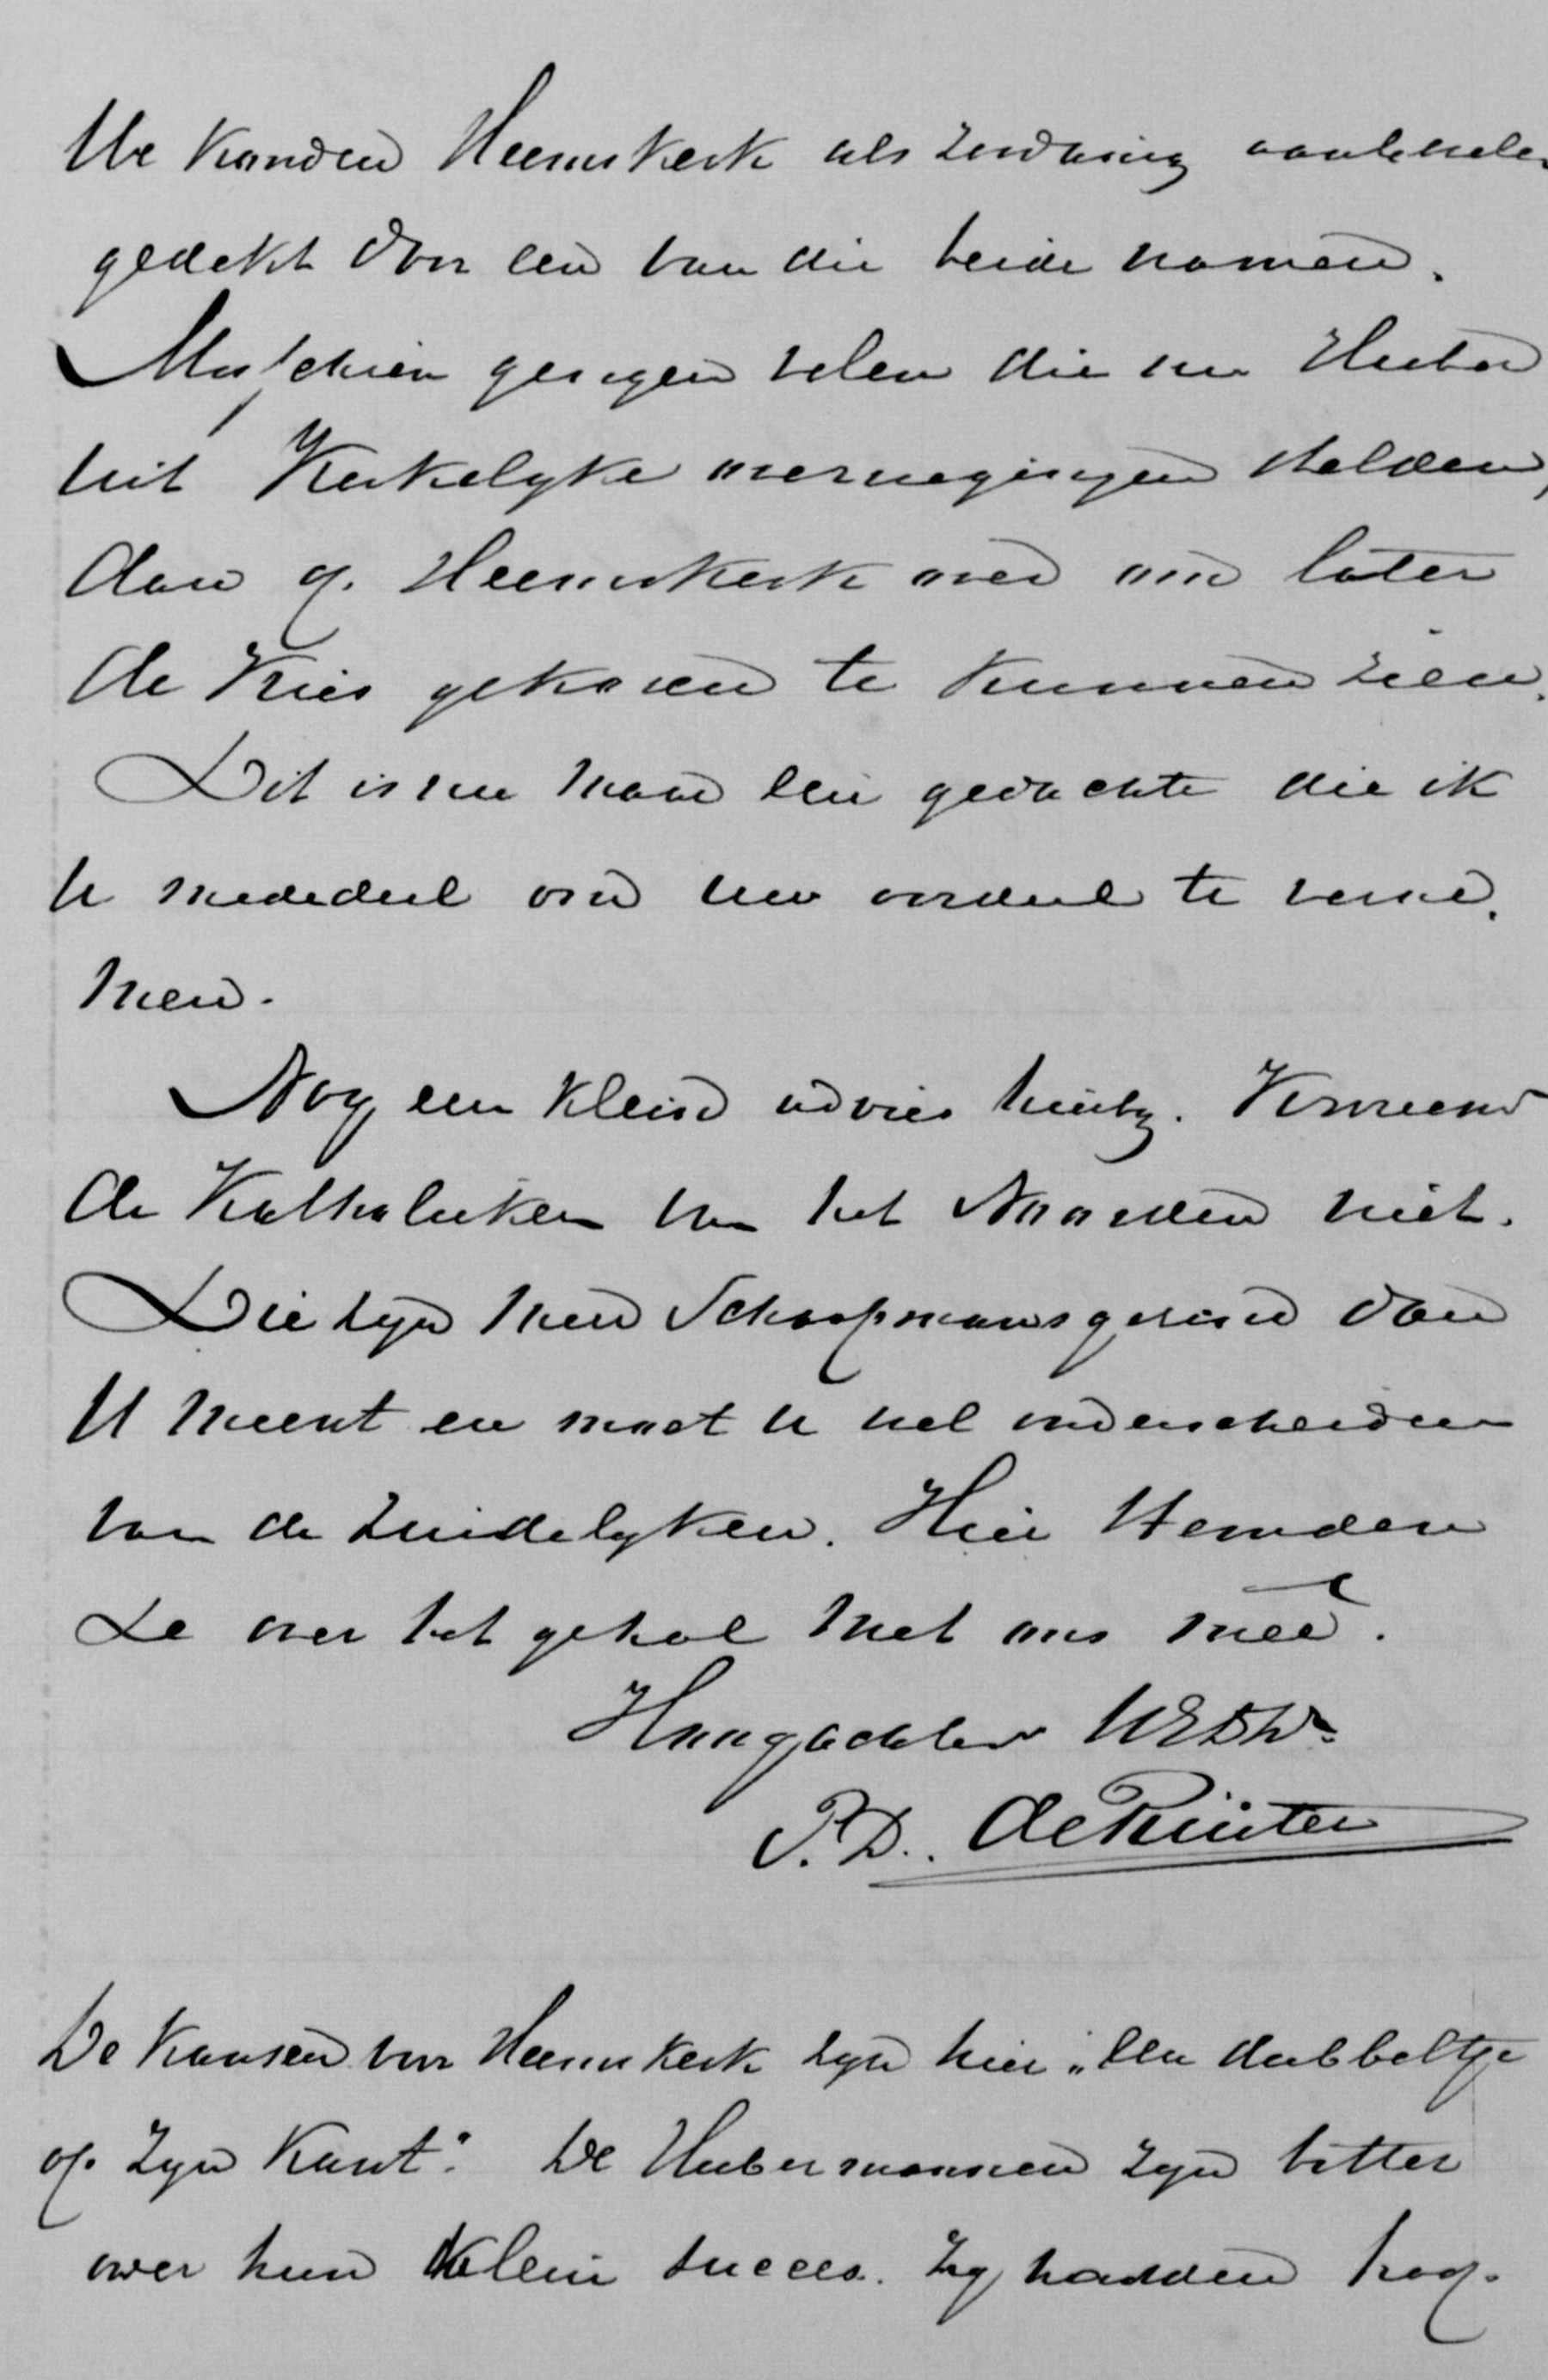 We konden Heemskerk als zoodanig aanbevelen
gedekt door een van die beide namen.
Misschien gingen velen die nu Huber
uit Kerkelyke overwegingen stelden,
dan op Heemskerk over om later
de Vries gekozen te kunnen zien.
Dit is nu maar een gedachte die ik
U mededeel om uw oordeel te verne-
men.
Nog een klein advies hierby. Verneem
de Katholieken van het Noorden niet.
Die zyn meer Schaepmansgezind dan
U meent en moet U wel onderscheiden
van de Zuidelyken. Hier stemden
ze over het geheel met ons meê.
Hoogachtend UEDw.
P.D. de Ruiter
De kansen voor Heemskerk zyn hier „een dubbeltje
op zyn Kant". De Hubermannen zyn bitter
over hun klein succes. Zy hadden hoop.